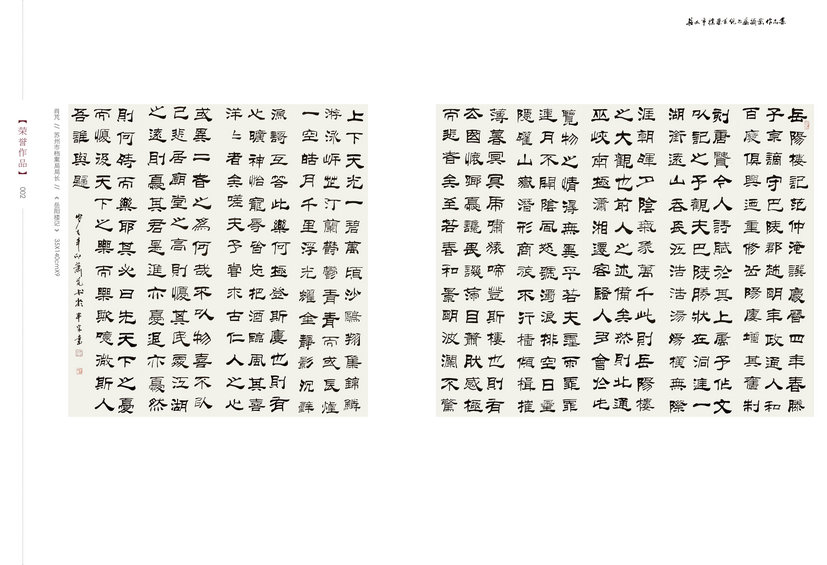 岳陽樓記范仲淹譔慶曆四年春滕
子京謫守巴陵郡越明年政通人和
百廢俱興迺重修岳陽樓增其舊制
刻唐賢今人詩賦於其上屬予作文
以記之予觀夫巴陵勝狀在洞庭一
湖銜遠山吞長江浩浩湯湯橫無際
涯朝暉夕陰氣象萬千此則岳陽樓
之大觀也前人之述備矣然則北通
巫峽南極瀟湘遷客騷人多會於此
覽物之情得無異乎若夫霪雨霏霏
連月不開陰風怒號濁浪排空日星
隱曜山嶽潛形商旅不行檣傾楫摧
薄暮冥冥虎嘯猿啼登斯樓也則有
去國懷鄉憂讒畏譏滿目蕭然感極
而悲者矣至若春和景明波瀾不驚
上下天光一碧萬頃沙鷗翔集錦鱗
游泳岸芷汀蘭鬱鬱青青而或長煙
一空皓月千里浮光耀金靜影沉璧
漁歌互答此樂何極登斯樓也則有
心曠神怡寵辱皆忘把酒臨風其喜
洋洋者矣嗟夫予嘗求古仁人之心
或異二者之為何哉不以物喜不以
己悲居廟堂之高則憂其民處江湖
之遠則憂其君是進亦憂退亦憂然
則何時而樂耶其必曰先天下之憂
而憂後天下之樂而樂歟噫微斯人
吾誰與歸
// 苏州市档案局局长 // 《岳阳楼记》 35X140cmX9
【荣誉作品】 002